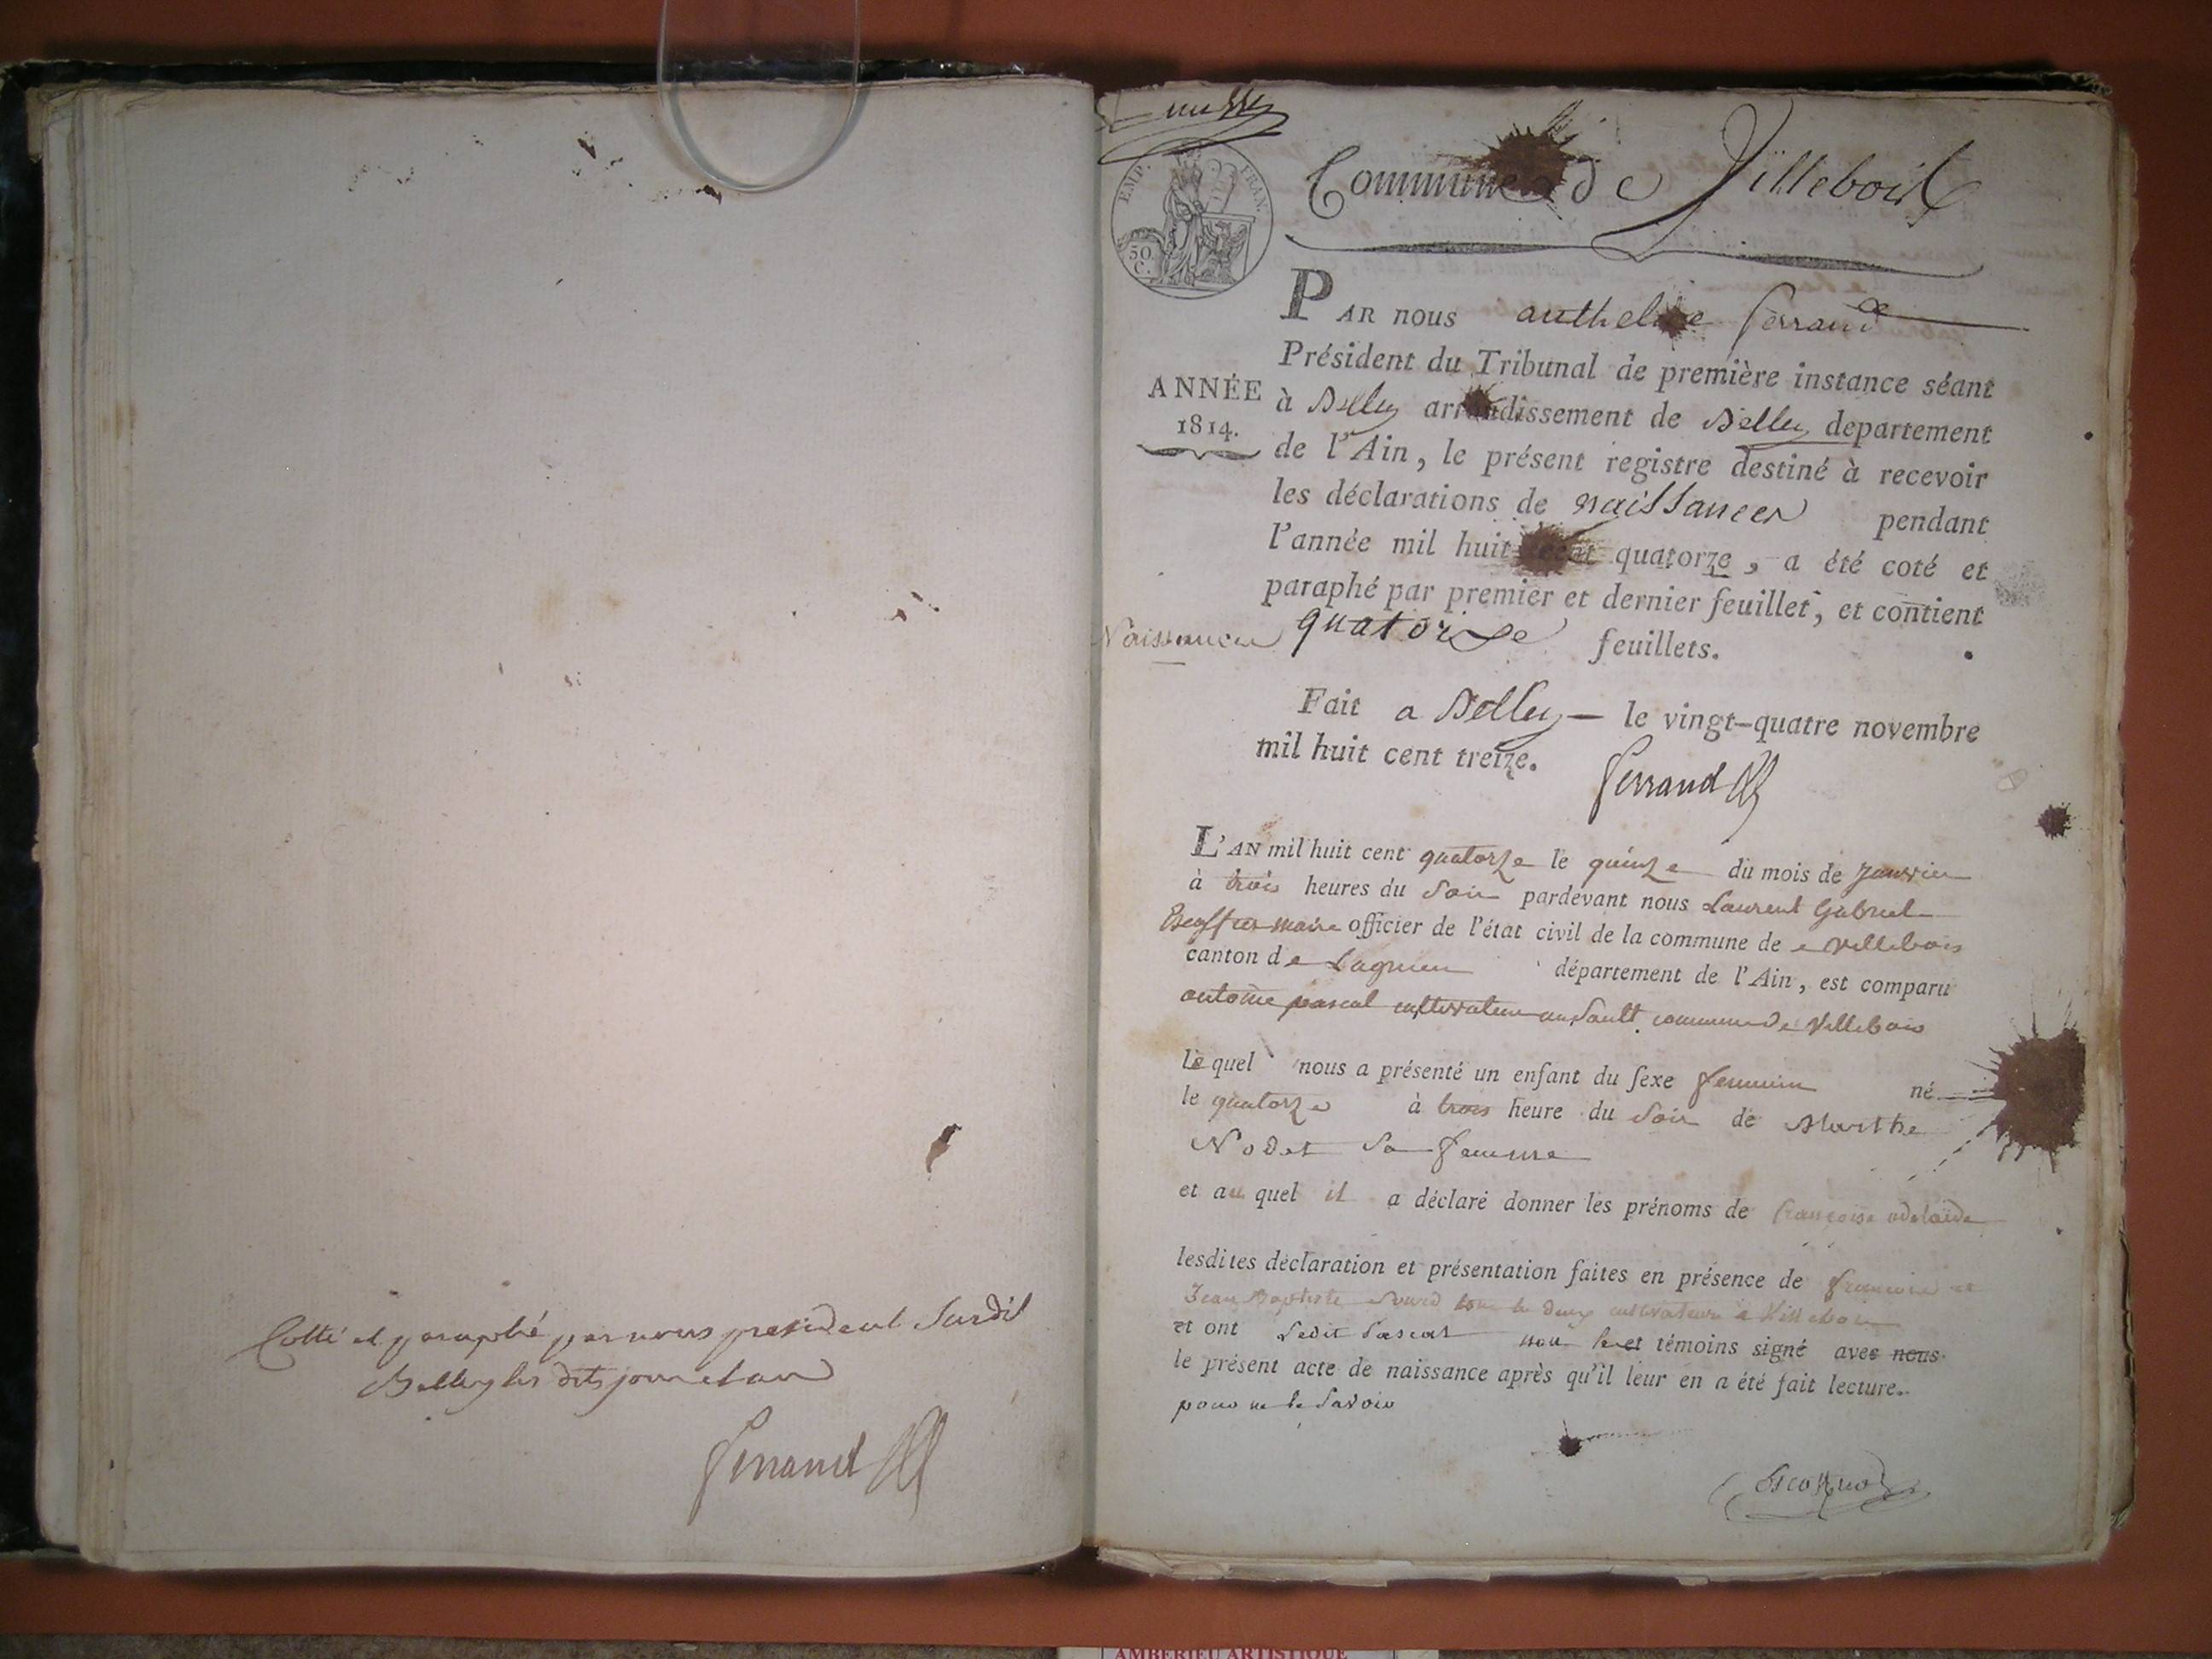 Cotté et paraphé par nous président Susdit
Belley les dits jour et an
Ferrand
EMP. FRAN.
50
C.
Commune de Villebois
PAR nous anthelme ferrand
Président du Tribunal de première instance séant
ANNÉE
1814.
à Belley arrondissement de Belley departement
de l'Ain, le présent registre destiné à recevoir
les déclarations de naissances pendant
l'année mil huit cent quatorze, a été coté et
paraphé par premier et dernier feuillet, et contient
Naissances
quatorze feuillets.
Fait a Belley — le vingt-quatre novembre
mil huit cent treize.
ferrand
L'AN mil huit cent quatorze le quinze du mois de Janvier
à trois heures du Soir pardevant nous Laurent Gabriel
maire officier de l'état civil de la commune de Villebois
canton de Lagnieu département de l'Ain, est comparu
antoine pascal cultivateur au Sault commune de Villebois
Lequel nous a présenté un enfant du sexe feminin né
le quatorze à trois heure du Soir de Marthe
Nodet Sa femme
et au quel il a déclaré donner les prénoms de françoise adelaïde
lesdites déclaration et présentation faites en présence de francois et
Jean Baptiste tous les deux cultivateurs à Villebois
et ont Ledit Pascal non témoins signé avec nous
le présent acte de naissance après qu'il leur en a été fait lecture.
pour ne le Savoir
AMBERIEU ARTISTIQUE